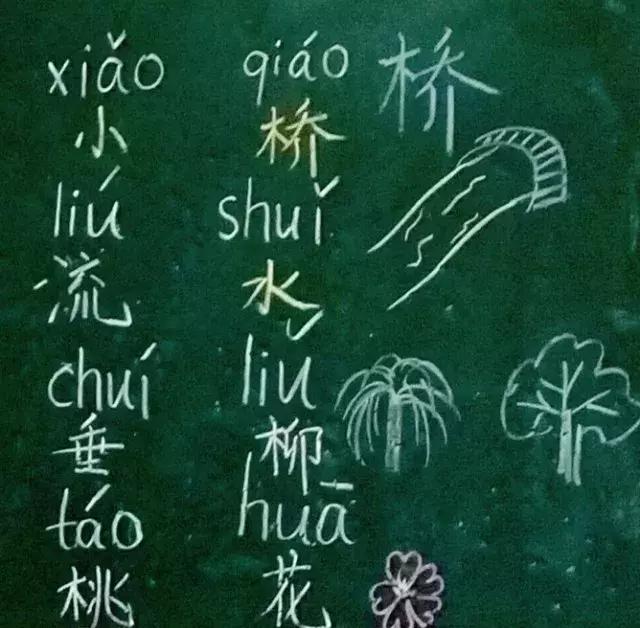 xiǎo qiáo 桥
小 桥
liú shuǐ
流 水
chuí liǔ
垂 柳
táo huā
桃 花